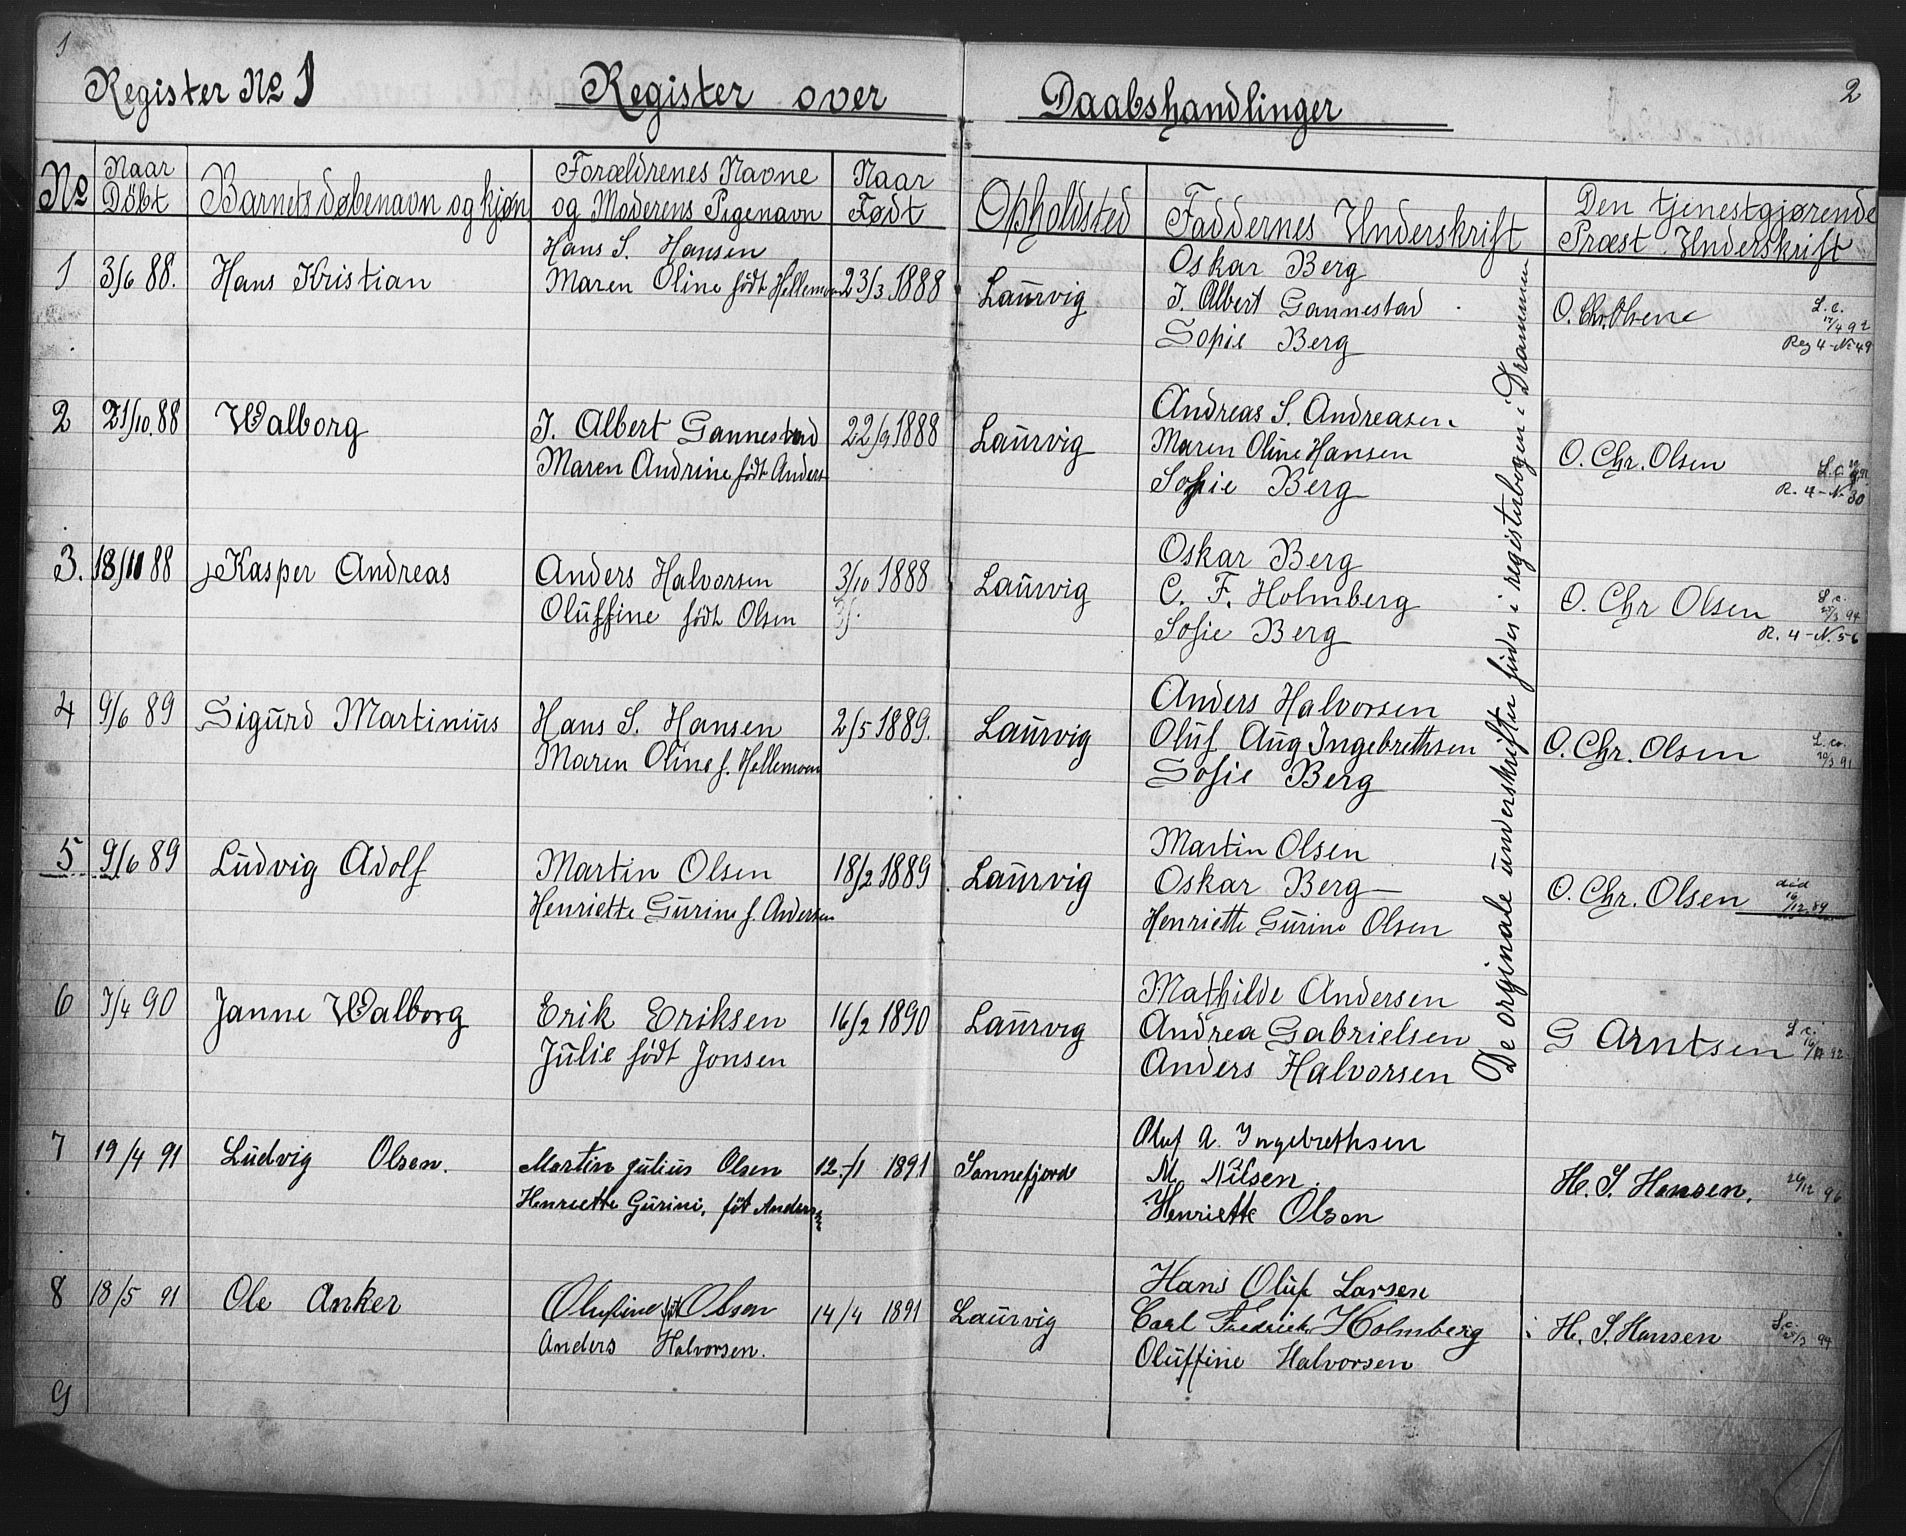 1
2
Register No 1
Register over Daabshandlinger
No
Naar Döbt
Barnets døbenavn og kjøn
Forældrenes Navne og Moderens Pigenavn
Naar Født
Opholdsted
Faddernes Underskrift
Den tjenestgjørende Præst Underskrift
1 3/6 88. Hans Kristian
Hans S. Hansen
Maren Oline födt Hellemoen 23/3 1888 Laurvig
Oskar Berg
J. Albert Gannestad
Sopie Berg
O. Chr. Olsen
L. c.
17/4 92
Reg 4 - No 49
2 21/10. 88 Walborg
J. Albert Gannestad
Maren Andrine födt Anders
22/9 1888 Laurvig
Andreas S. Andreasen
Maren Oline Hansen
Sofie Berg
O. Chr. Olsen
L. c.
R. 4 - N. 30
3. 18/11 88 Kasper Andreas
Anders Halvorsen
Oluffine födt Olsen
3/10 1888 Laurvig
Oskar Berg
C. F. Holmberg
Sofie Berg
O. Chr Olsen
L. c.
25/3 94
R. 4 - N. 56
4 9/6 89 Sigurd Martinius
Hans S. Hansen
Maren Oline f. Hellemoen
2/5 1889. Laurvig
Anders Halvorsen
Oluf Aug Ingebrethsen
Sofie Berg
O. Chr. Olsen
L. co.
20/3 91
5 9/6 89 Ludvig Adolf
Martin Olsen
Henriette Gurine f. Andersen
18/2 1889 Laurvig
Martin Olsen
Oskar Berg
Henriette Gurine Olsen
O. Chr. Olsen
död
16/12 89
6 7/4 90 Janne Walborg
Erik Eriksen
Julie födt Jonsen
16/2 1890 Laurvig
Mathilde Andersen
Andrea Gabrielsen
Anders Halvorsen
G Arntsen
L c.
7 19/4 91 Ludvig Olsen.
Martin Julius Olsen
Henreette Gurine, föt Andersen
12.-/1 1891 Sannefjorde
Oluf A. Ingebrethsen
M. Nilsen.
Henriette Olsen
H. S. Hansen.
29/12 96
8 18/5 91 Ole Anker
Olufine föt Olsen
Anders Halvorsen.
14/4 1891 Laurvig
Hans Oluf Larsen
Carl Fredrick Holmberg
Oluffine Halvorsen
H. S. Hansen
L. c.
25/3 94
9
De orginale underskrifter findes i registerbogen i Drammen